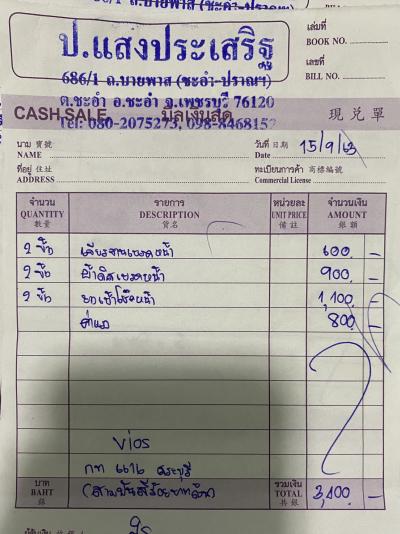 ป.แสงประเสริฐ
686/1 ถ.บายพาส (ชะอำ-ปราณฯ)
ต.ชะอำ อ.ชะอำ จ.เพชรบุรี 76120
Tel: 080-2075273, 098-8468152
เล่มที่
BOOK NO.
เลขที่
BILL NO.
CASH SALE บิลเงินสด 現兌單
นาม 寶號
NAME
วันที่ 日期
Date 15/9/63
ที่อยู่ 住址
ADDRESS
ทะเบียนการค้า 商標編號
Commercial License
จำนวน รายการ หน่วยละ จำนวนเงิน
QUANTITY DESCRIPTION UNIT PRICE AMOUNT
數量 貨名 備註 銀額
2 ชิ้น เจียรจานเบรคหน้า 600 -
2 ชิ้น ผ้าดิสเบรคหน้า 900 -
2 ชิ้น หน้า 1,100 -
ค่าแรง 800 -
Vios
กท 6616 สระบุรี
บาท รวมเงิน
BAHT (สามพันสี่ร้อยบาทถ้วน) TOTAL 3,400 -
銖 共銀